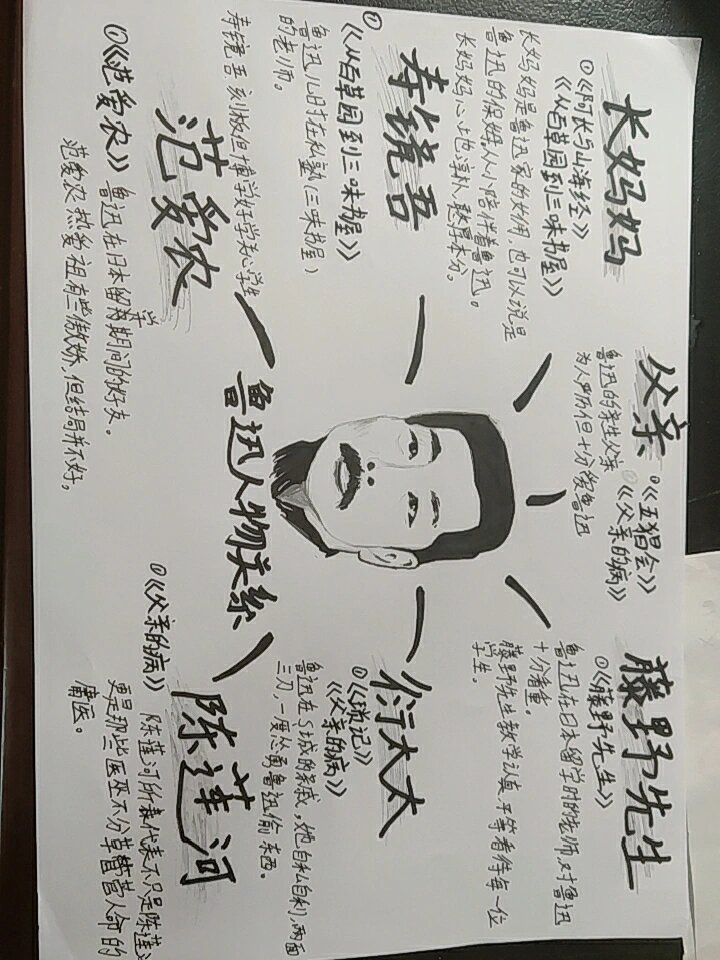 长妈妈
①《阿长与山海经》
《从百草园到三味书屋》
长妈妈是鲁迅家的女佣,也可以说是
鲁迅的保姆,从小陪伴着鲁迅。
长妈妈心地淳朴、敦厚本分。
父亲
①《五猖会》
①《父亲的病》
鲁迅的亲生父亲
为人严厉但十分爱鲁迅
藤野先生
①《藤野先生》
鲁迅在日本留学时的老师,对鲁迅
十分看重。
藤野先生教学认真,平等看待每一位
学生。
寿镜吾
①《从百草园到三味书屋》
鲁迅儿时在私塾(三味书屋)
的老师。
寿镜吾 刻板但博学好学关心学生
衍太太
①《琐记》
《父亲的病》
鲁迅在S城的亲戚,她自私自利,两面
三刀,一度怂恿鲁迅偷东西。
鲁迅人物关系
范爱农
①《范爱农》 鲁迅在日本留学期间的好友。
范爱农 热爱祖有些傲娇,但结局并不好,
陈莲河
①《父亲的病》 陈莲河所代表不只是陈莲
更是那些医巫不分草菅人命的
庸医。